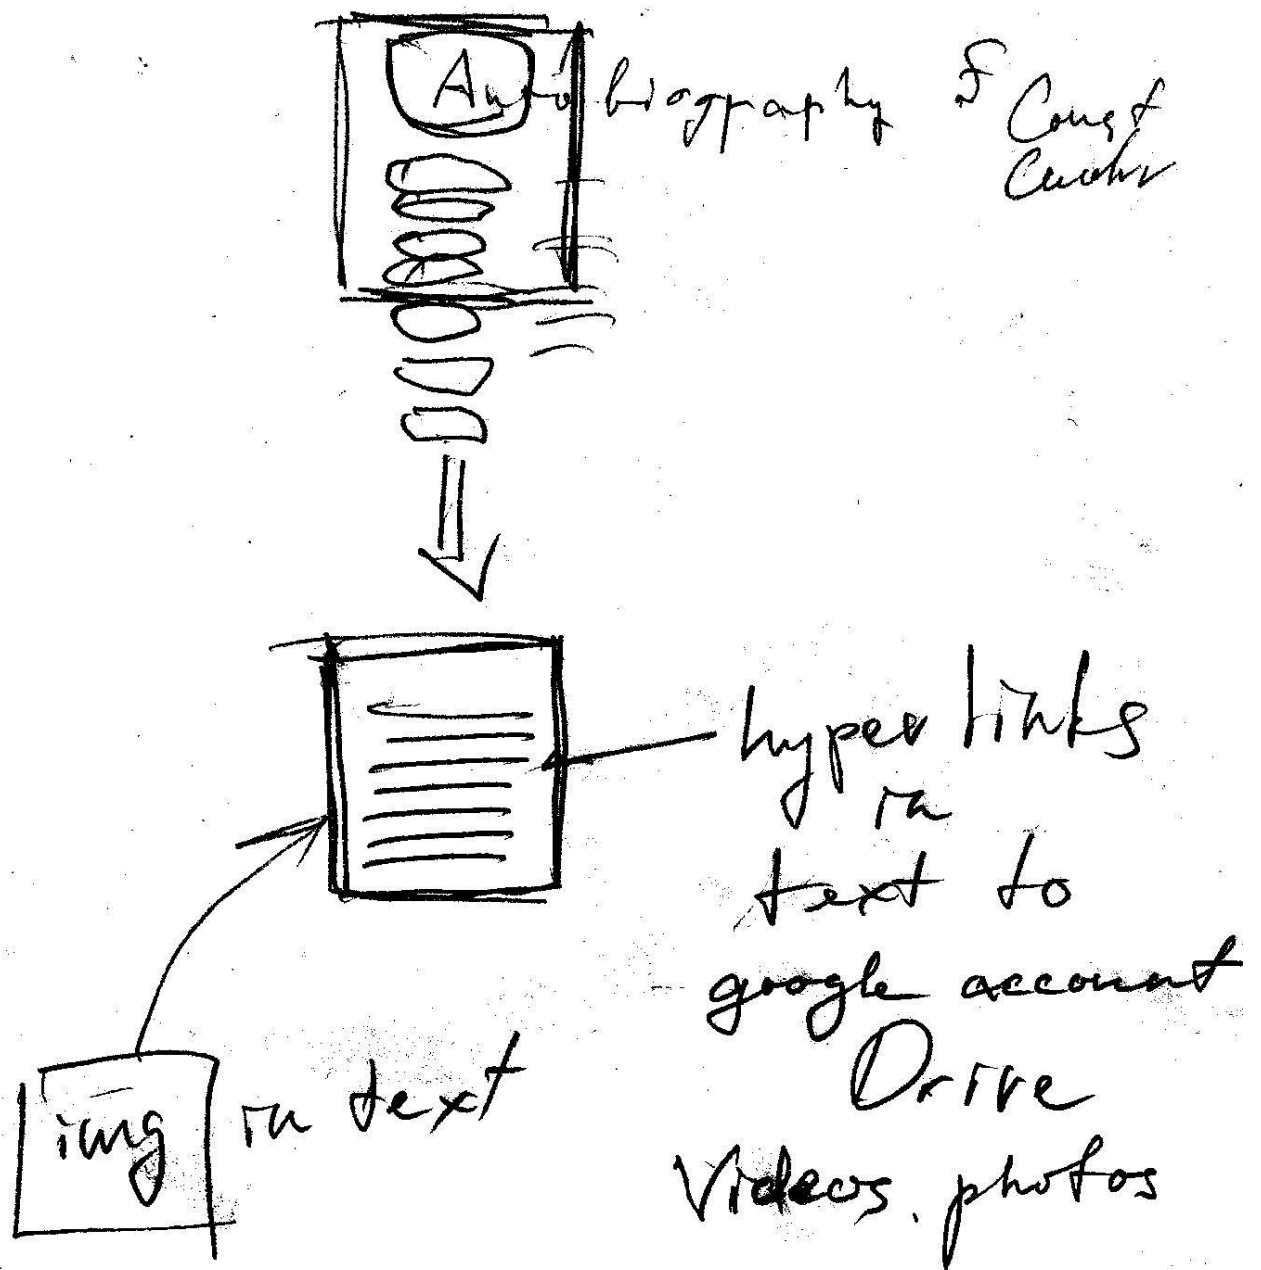 Autobiography
hyper links
in
text to
google account
Drive
Videos. photos
img in text